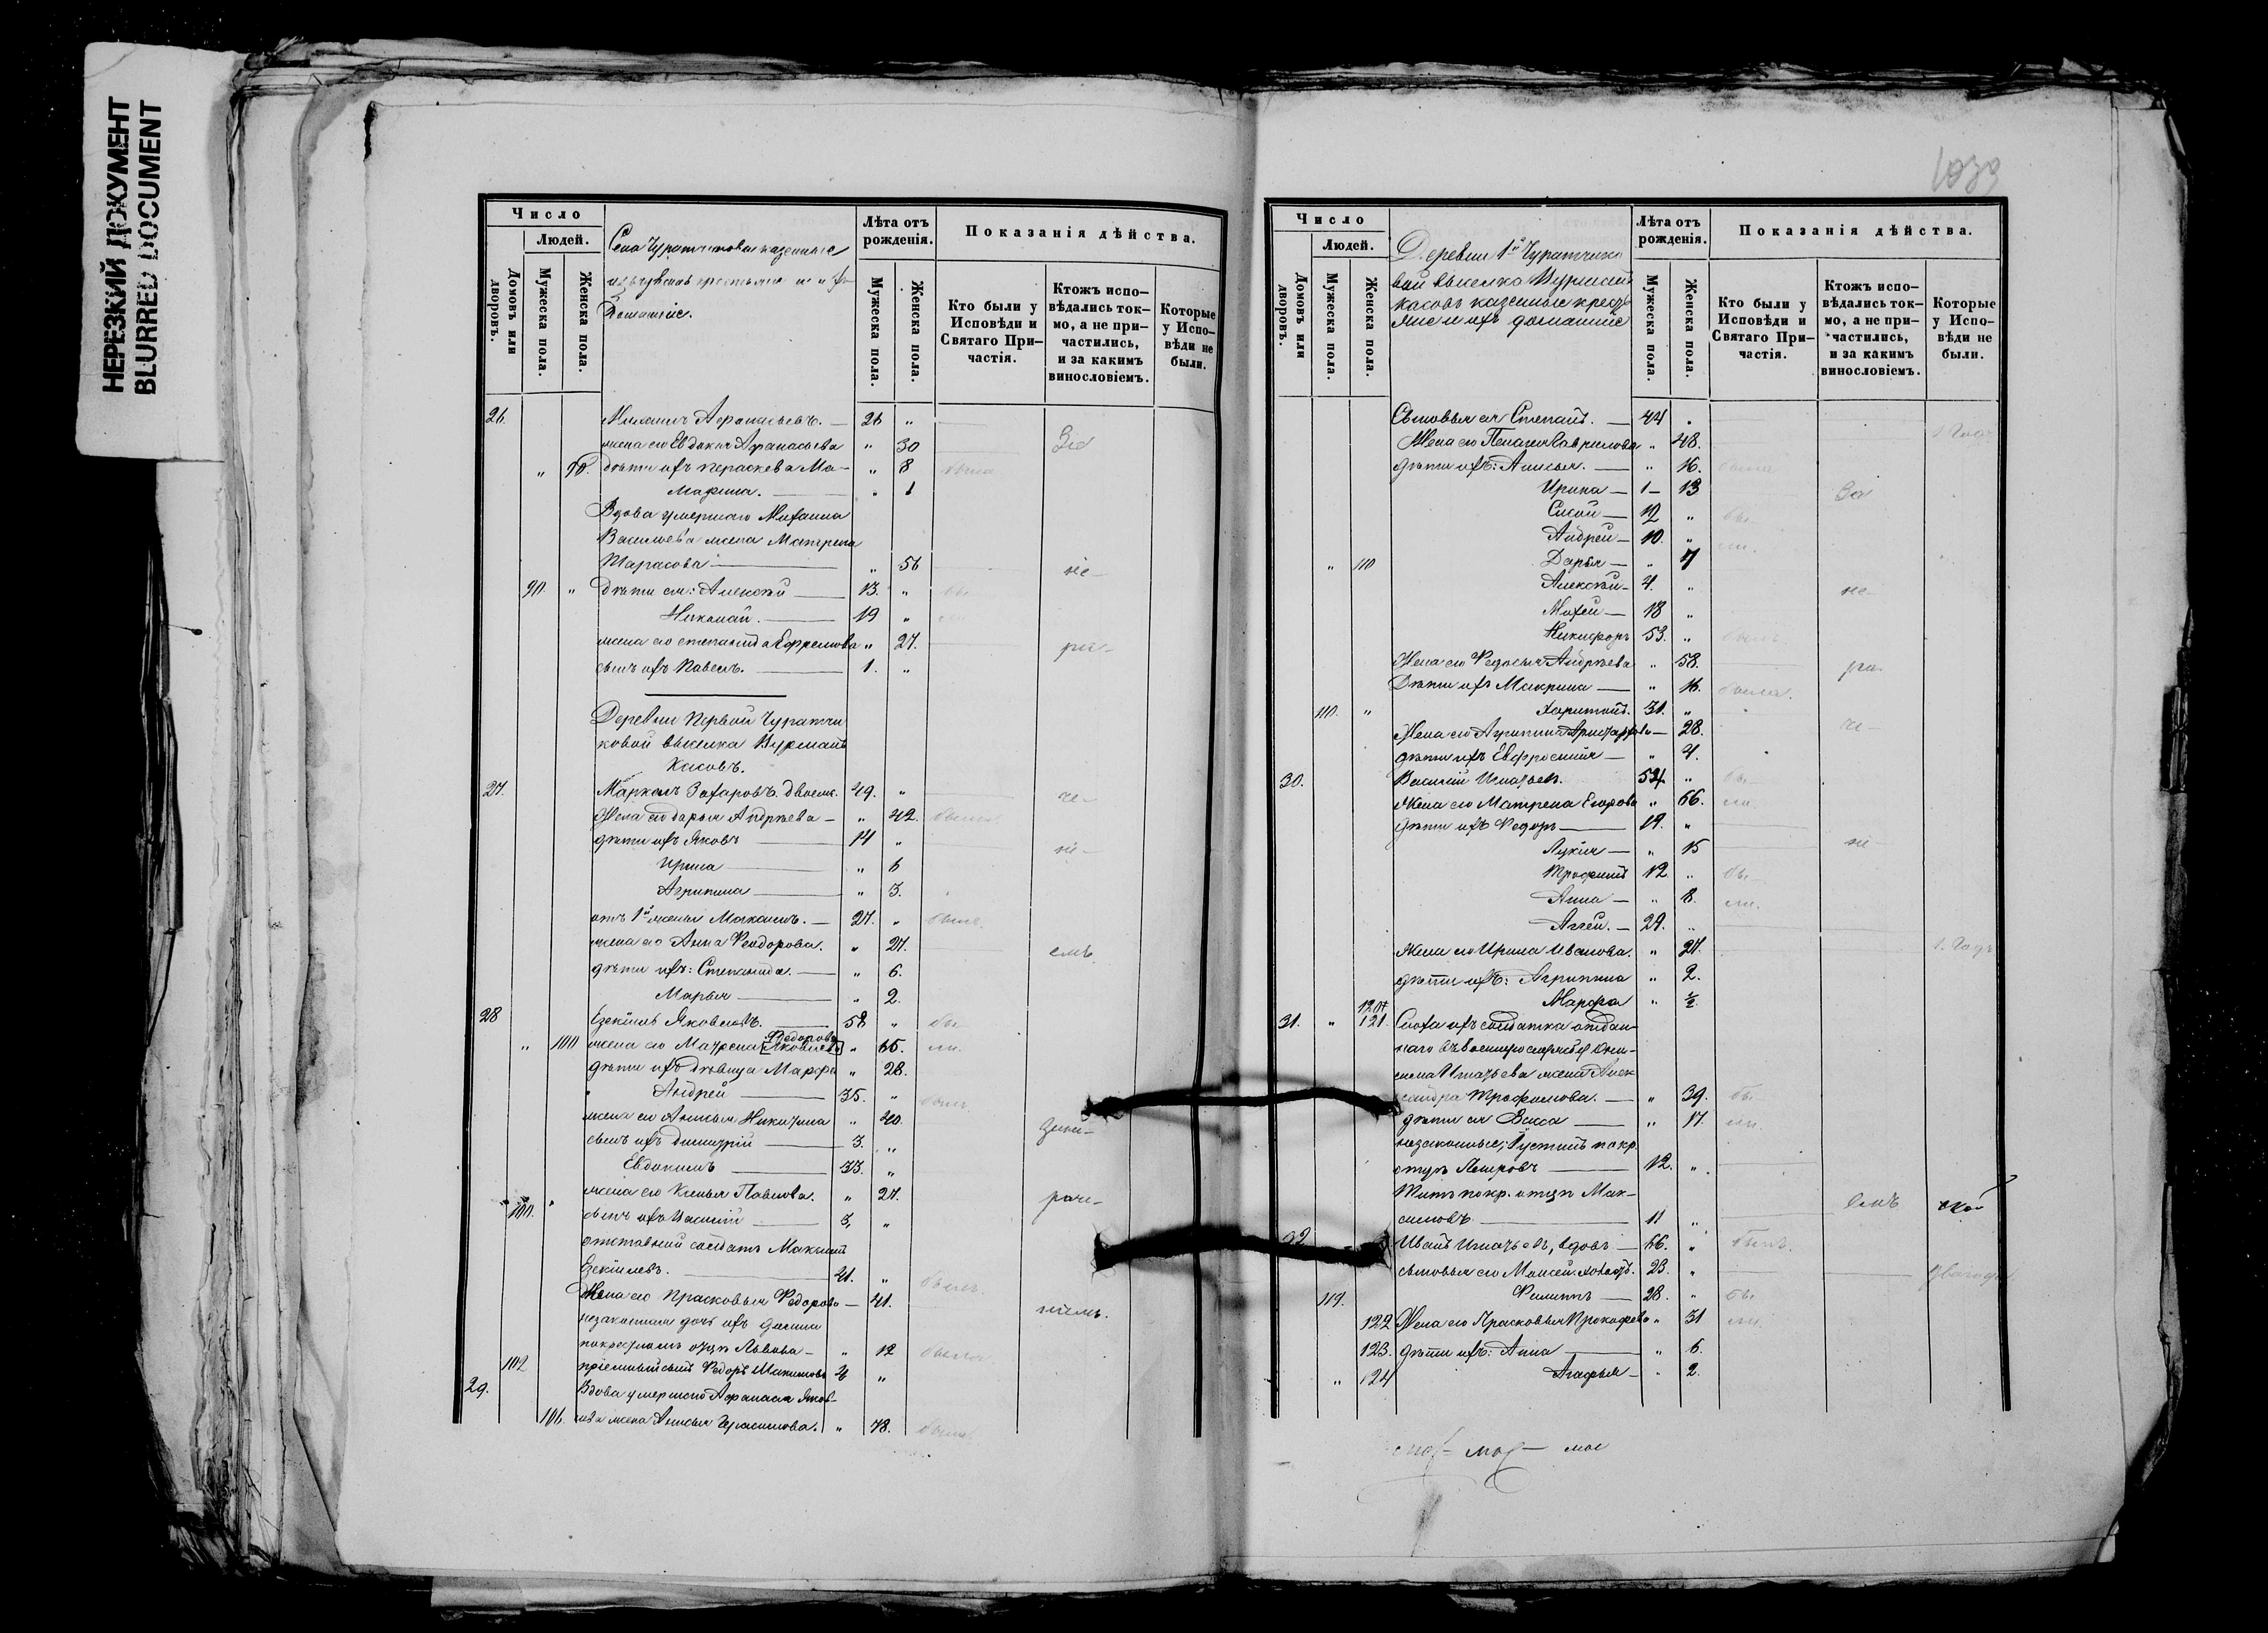 НЕРЕЗКИЙ ДОКУМЕНТ
BLURRED DOCUMENT
Число
Людей.
Домовъ или дворовъ.
Мужеска пола.
Женска пола.
Села Чуратчикова казенные
изъ чувашъ крестьяне и
Домашніе.
Лѣта отъ рожденія.
Мужеска пола.
Женска пола.
Показанія дѣйства.
Кто были у Исповѣди и Святаго При-частія.
Ктожъ испо-вѣдались ток-мо, а не при-частились, и за какимъ винословіемъ.
Которые у Испо-вѣди не были.
26. Михаилъ Афанасьевъ. — 26 „
жена его Евдокия Афанасьева „ 30 За
„ дѣти ихъ Пераскева Ма- „ 8 была
Марѳина. — „ 1
Вдова умершаго Михаила
Васильева жена Матрена
Тарасова — „ 56 не-
90. „ дѣти ея: Алексѣй — 13. „ бы-
Николай. — 19 „ ли
жена его Степанида Ефремова „ 27. ра-
сынъ ихъ Павелъ. — 1. „
Деревни Первой Чуратчи
ковой выселка Вурманъ
Касовъ.
27. Маркелъ Захаровъ. двоеж. 49. „ че-
Жена его Дарья Андрѣева — „ 42. была
дѣти ихъ Яковъ — 14 „ ні-
Ирина — „ 6
Агрипина — „ 3.
отъ 1й жены Максимъ. — 27. „ былъ.
жена его Анна Ѳеодорова. „ 27. емъ
дѣти ихъ: Степанида. — „ 6.
Марья — „ 2.
28 Езекіилъ Яковлевъ. — 58 „ бы-
Ѳедорова
„ 100 жена его Матрена [Яковлева] „ 65. ли.
дѣти ихъ дѣвица Марфа „ 28.
Андрей — 35. „ былъ
жена его Анисья Никитина „ 40.
сынъ ихъ Димитрій — 3. „
Евдокимъ — 33. „
жена его Ксенья Павлова. „ 27. раче-
100. „ сынъ ихъ Василій — 3, „
отставный солдатъ Максимъ
Езекіилевъ. — 41. „ былъ.
Жена его Прасковья Ѳедорова — 41. ніемъ.
незаконная дочь ихъ
покрестномъ отцѣ Львова — „ 12 была
102 пріемный сынъ Ѳедоръ 4 „
29. Вдова умершаго Афанасія Яков-
106. лева жена Анисья Герасимова. „ 78. была
1039
Число
Людей.
Домовъ или дворовъ.
Мужеска пола.
Женска пола.
Деревни 1й Чуратчико
вой выселка Вурманъ
касовъ казенные кресть
яне и ихъ домашніе
Лѣта отъ рожденія.
Мужеска пола.
Женска пола.
Показанія дѣйства.
Кто были у Исповѣди и Святаго При-частія.
Ктожъ испо-вѣдались ток-мо, а не при-частились, и за какимъ винословіемъ.
Которые у Испо-вѣди не были.
Сыновья ея Степанъ. — 44 „
Жена его Пелагея Гаврилова „ 48. 1 годъ
дѣти ихъ: Анисья. — „ 16. была
Ирина — 1 — 13 За
Сысой — 12 „ бы-
Андрей — 10. „ ли.
„ 110 Дарья — „ 7
Алексѣй — 4. „ не-
Моѵсей — 18 „
Никифоръ 53. „ былъ
Жена его Ѳедосья Андрѣева „ 58. ра-
Дѣти ихъ Макрина — „ 16. была.
110. „ Харитонъ. 31. „
Жена его Агрипина Аристархова — 28. че-
дѣти ихъ Евфросинія — „ 4.
30. Василій Игнатьевъ. 54. „ бы-
Жена его Матрена Егорова „ 66. ли.
дѣти ихъ Ѳедоръ — 19. „
Лукія — „ 15 ні-
Трофимъ 12. „ бы-
Анна — „ 8. ли.
Аггей. — 27. „
Жена его Ирина Иванова. „ 27. 1. годъ
дѣти ихъ: Агрипина „ 2.
Марфа „ ½
31. „ 121. Сноха ихъ солдатка отдан-
наго въ военную службу
Игнатьева жена Алек
сандра Трофимова. — „ 39. бы-
дѣти ея Васса — „ 17. ли.
незаконные, Густинъ по кр.
отцѣ Петровъ — 12. „
Титъ по кр. отцѣ Мак-
симовъ. — 11 „ емъ
32 Иванъ Игнатьевъ, вдовъ — 66. „ былъ.
сыновья его Моисей холостъ. 23. „ два года
119. Филиппъ — 28. „ бы-
122 Жена его Прасковья Прокофьева „ 31 ли
123. дѣти ихъ: Анна — „ 6.
„ 124 Агафья — „ 2.